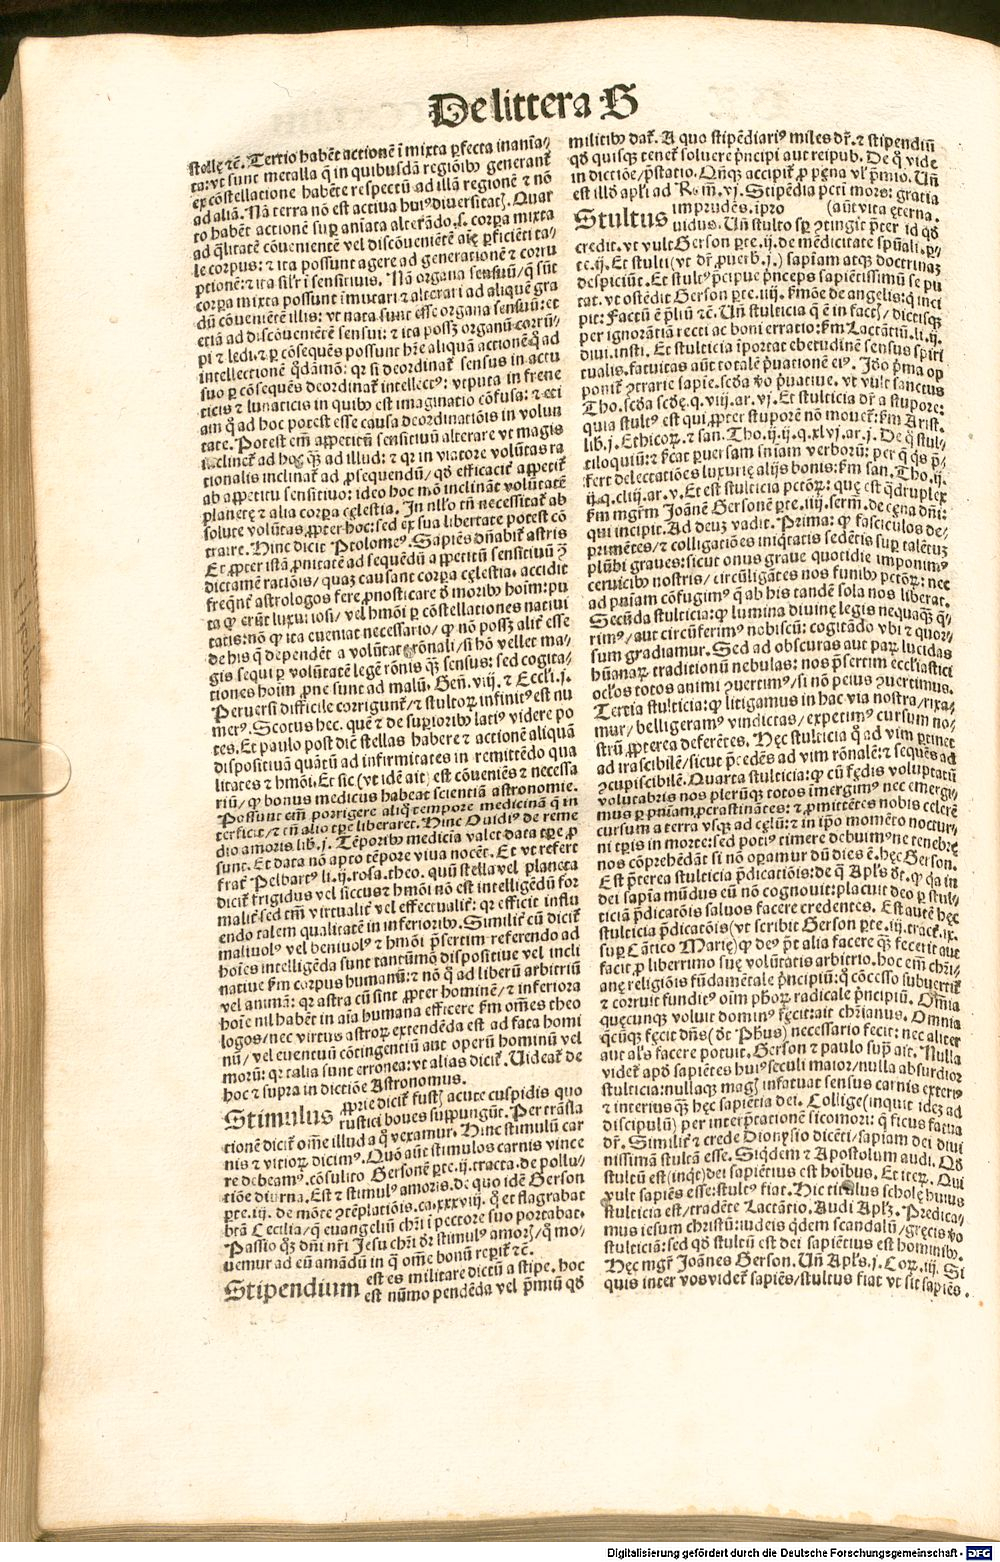 De littera S
stellę ⁊c̄. Tertio habēt actionē ī mixta ꝑfecta inanīa⸗
ta: vt sunt metalla q̄ in quibusdā regiōibꝰ generant̄
ex cōstellatione habēte respectū ad illā regionē ⁊ nō
ad aliā. Nā terra nō est activa huiꝰ diuersitat̄. Quar
to habēt actionē suꝑ aniata alterādo .s. corꝑa mixta
ad q̄litatē cōuenientē vel discōuenientē aīę ꝑficiēti ta⸗
le corpus: ⁊ ita possunt agere ad generationē ⁊ corru
ptionē: ⁊ ita sil'r ī sensitiuis. Nā organa sensuū / q̄ sūt
corꝑa mixta possunt īmutari ⁊ alterari ad aliquē gra
dū cōueniētē illis: vt nata sunt esse organa sensuū: et
etiā ad discōueniētē sensui: ⁊ ita possꝫ organū corrū⸗
pi ⁊ ledi. ⁊ ꝑ cōsequēs possunt hr̄e aliquā actionē ad
intellectionē q̄dāmō: qꝛ si deordinat̄ sensus in actu
suo ꝑ cōsequēs deordinat̄ intellectꝰ: vtputa in frene
ticis ⁊ lunaticis in quibꝰ est imaginatio cōfusa: ⁊ eti
am q̄ ad hoc potest esse causa deordinatiōis in volun
tate. Potest em̄ appetitū sensitiuū alterare vt magis
inclinet̄ ad hoc q̄ꝫ ad illud: ⁊ qꝛ in viatore volūtas ra
tionalis inclinat̄ ad ꝓsequendū / qd̄ efficacit̄ appetit̄
ab appetitu sensitiuo: ideo hoc mō inclināt volūtatē
planetę ⁊ alia corꝑa cęlestia. In nl'lo tn̄ necessitat̄ ab
solute volūtas ꝓpter hoc: sed ex sua libertate potest cō
traire. Hinc dicit Ptolomeꝰ. Sapiēs dn̄abit̄ astris
Et ꝓpter istā ꝓnitatē ad sequēdū appetitū sensitiuū ꝯ̄
dictamē ratiōis / quaꝫ causant corꝑa cęlestia. accidit
freq̄nt̄ astrologos fere ꝓnosticare d̄ moribꝰ hoīm: pu
ta ꝙ erūt luxuriosi / vel hmōi ꝑ cōstellationes natiui
tatis: nō ꝙ ita eueniat necessario / ꝙ nō possꝫ alit̄ esse
de his q̄ dependēt a volūtate rōnali / si hō vellet ma⸗
gis sequi ꝑ volūtatē legē rōnis q̄ꝫ sensus: sed cogita⸗
tiones hoīm ꝓne sunt ad malū. Gen̄. viij. ⁊ Eccl'i. j.
Peruersi difficile corrigunt̄ / ⁊ stultoꝝ infinitꝰ est nu
merꝰ. Scotus hec. quē ⁊ de suꝑioribꝰ latiꝰ videre po
tes. Et paulo post diē stellas habere ⁊ actionē aliquā
dispositiuā quātū ad infirmitates in remittēdo qua
litates ⁊ hmōi. Et sic (vt idē ait) est cōueniēs ⁊ necessa
riū / ꝙ bonus medicus habeat scientiā astronomie.
Possunt em̄ porrigere aliq̄ tempore medicinā q̄ in
terficit / ⁊ cū alio tꝑe liberaret. Hinc Ouidiꝰ de reme
dio amoris lib. j. Tēporibꝰ medicīa valet data tꝑe ꝓ
sunt. Et data nō apto tēpore viua nocēt. Et vt refert
frat̄ Pelbartꝰ li. ij. rosa. theo. quū stella vel planeta
dicit̄ frigidus vel siccus ⁊ hmōi nō est intelligēdū for
malit̄: sed tm̄ virtualit̄ vel effectualit̄: qꝛ efficit influ
endo talem qualitatē in inferioribꝰ. Similit̄ cū dicit̄
maliuolꝰ vel beniuolꝰ ⁊ hmōi p̄sertim referendo ad
hoīes intelligēda sunt tantūmō dispositiue vel incli
natiue ẜm corpus humanū: ⁊ nō q̄ ad liberū arbitriū
vel animā: qꝛ astra cū sint ꝓpter hominē / ⁊ inferiora
hoīe nil habēt in aīa humana efficere ẜm om̄es theo
logos / nec virtus astroꝝ extendēda est ad fata homi
nū / vel euentuū cōtingentiū aut operū hominū vel
morū: qꝛ talia sunt erronea: vt alias dicit̄. Uideat̄ de
hoc ⁊ supra in dictiōe Astronomus.
Stimulus ꝓprie dicit̄ fust̄ acute cuspidis quo
rustici boues suppungūt. Per trāsla
tionē dicit̄ om̄e illud a q̄ vexamur. Hinc stimulū car
nis ⁊ vitioꝝ dicimꝰ. Quō aūt stimulos carnis vince
re debeamꝰ. cōsulito Gersonē ꝑte. ij. tracta. de pollu⸗
tiōe diurna. Est ⁊ stimulꝰ amoris. de quo idē Gerson
ꝑte. iij. de mōte ꝯtēplatiōis. ca. xxxviij. q̄ et flagrabat
brā Cecilia / q̄ euangeliū chr̄i ī pectore suo portabat.
Passio q̄ꝫ dn̄i nr̄i Jesu chr̄i dr̄ stimulꝰ amoꝝ / q̄ mo⸗
uemur ad eū amādū in q̄ om̄e bonū reperit̄ ⁊c̄.
Stipendium est es militare dictū a stipe. hoc
est nūmo pendēda vel p̄miū qd̄
militibꝰ dat̄. A quo stipēdiariꝰ miles dr̄. ⁊ stipendiū
qd̄ quisqꝫ tenet̄ soluere p̄ncipi aut reipub. De q̄ vide
in dictiōe / p̄statio. Qn̄qꝫ accipit̄ ꝓ pęna vl' p̄mio. Un̄
est illd̄ apl'i ad Rom̄. vj. Stipēdia pctī mors: gratia
Stultus imprudēs. ipro (aūt vita ęterna.
uidus. Un̄ stulto sꝑ ꝯtingit p̄ter id qd̄
credit. vt vult Gerson ꝑte. ij. de mēdicitate spūali. ꝑ⸗
te. ij. Et stulti (vt dr̄ ꝓuerb. j.) sapīam atqꝫ doctrinaꝫ
despiciūt. Et stultꝰ p̄cipue p̄nceps sapiētissimū se pu
tat. vt ostēdit Gerson ꝑte. iiij. ẜmōe de angelis: q̄ inci
pit: Factū ē p̄liū ⁊c̄. Un̄ stulticia q̄ ē in fact̄ / dictisqꝫ
per ignorātiā recti ac boni erratio: ẜm Lactātiū. li. ij.
diui. insti. Et stulticia īportat ebetudinē sensus spiri
tualis. fatuitas aūt totalē p̄uationē eiꝰ. Jdo p̄ma op
ponit̄ ꝯtrarie sapīe. scd̄a v̄o p̄uatiue. vt vult sanctus
Tho. scd̄a scd̄ę. q. viij. ar. vj. Et stulticia dr̄ a stupore:
quia stultꝰ est qui ꝓpter stuporē nō mouet̄: ẜm Arist.
lib. j. Ethicoꝝ. ⁊ san. Tho. ij. ij. q. xlvj. ar. j. De q̄ stul⸗
tiloquiū: ⁊ ẜcat ꝑuersam sniam verborū: per q̄ qs p̄⸗
fert delectatiōes luxurię alijs bonis: ẜm san. Tho. ij.
ij. q. cliij. ar. v. Et est stulticia pctōꝝ: quę est q̄druplex
ẜm mgr̄m Joānē Gersonē ꝑte. iiij. serm̄. de cęna dn̄i:
qui incipit. Ad deuꝫ vadit. Prima: ꝙ fasciculos de⸗
primētes / ⁊ colligatiōes iniq̄tatis sedētis suꝑ talētuꝫ
plūbi graues: sicut onus graue quotidie imponimꝰ
ceruicibꝰ nostris / circūligātes nos funibꝰ pctōꝝ: nec
ad pn̄iam cōfugimꝰ q̄ ab his tandē sola nos liberat.
Secūda stulticia: ꝙ lumina diuinę legis nequaqꝫ q̄⸗
rimꝰ / aut circūferimꝰ nobiscū: cogitādo vbi ⁊ quor⸗
sum gradiamur. Sed ad obscuras aut paꝝ lucidas
hūanaꝝ traditionū nebulas: nos p̄sertim eccl'iastici
ocl'os totos animi ꝯuertimꝰ / si nō peius ꝯuertimus.
Tertia stulticia: ꝙ litigamus in hac via nostra / rixa⸗
mur / belligeramꝰ vindictas / expetimꝰ cursum no⸗
strū ꝓpterea deferētes. Hęc stulticia q̄ ad vim ꝑtinet
ad irascibilē / sicut p̄cedēs ad vim rōnalē: ⁊ sequēs ad
ꝯcupiscibilē. Quarta stulticia: ꝙ cū fędis voluptatū
volutabris nos plerūqꝫ totos īmergimꝰ nec emergi⸗
mus ꝑ pn̄iam ꝓcrastinātes: ⁊ ꝓmittētes nobis celerē
cursum a terra vsqꝫ ad cęlū: ⁊ in ip̄o momēto noctur⸗
ni tꝑis in morte: sed potiꝰ timere debuimꝰ ne tenebrę
nos cōprehēdāt si nō oꝑamur dū dies ē. hęc Gerson.
Est p̄terea stulticia p̄dicatiōis: de q̄ Apl's dt̄. ꝙ qꝛ in
dei sapīa mūdus eū nō cognouit: placuit deo ꝑ stul⸗
ticiā p̄dicatōis saluos facere credentes. Est autē hęc
stulticia p̄dicatōis (vt scribit Gerson ꝑte. iij. tract̄. ix.
suꝑ Cātico Marię) ꝙ deꝰ p̄t alia facere q̄ꝫ fecerit aut
facit ꝓ liberrimo suę volūtatis arbitrio. hoc em̄ chr̄i⸗
anę religiōis fūdamētale p̄ncipiū: q̄ cōcesso subuertit̄
⁊ corruit funditꝰ oīm ph̄oꝝ radicale p̄ncipiū. Om̄ia
quęcunqꝫ voluit dominꝰ fęcit: ait chr̄ianus. Omnia
q̄cūqꝫ fęcit dn̄s (dt̄ Ph̄us) necessario fecit: nec aliter
aut al's facere potuit. Gerson ⁊ paulo supͣ ait. Nulla
videt̄ apd̄ sapiētes huiꝰ seculi maior / nulla absurdior
stulticia: nullaqꝫ magꝭ infatuat sensus carnis exteriꝰ
⁊ interius q̄ꝫ hęc sapiētia dei. Collige (inquit ideꝫ ad
discipulū) per interp̄tationē sicomori: q̄ ficus fatua
dr̄. Similit̄ ⁊ crede Dionysio dicēti / sapiam dei diui
nissimā stultā esse. Siq̄dem ⁊ Apostolum audi. Qd̄
stultū est (inqt) dei sapiētius est hoībus. Et iteꝝ. Qui
vult sapiēs esse: stultꝰ fiat. Hic titulus scholę huius
stulticia est / tradēte Lactātio. Audi Apl'ꝫ. Predica⸗
mus iesum christū: iudeis q̄dem scandalū / gręcis v̄o
stulticiā: sed qd̄ stultū est dei sapiētius est hominibꝰ.
Hęc mgr̄ Joānes Gerson. Un̄ Apl's. j. Coꝝ. iij. Si
quis inter vos videt̄ sapiēs / stultus fiat vt sit sapiēs.
Digitalisierung gefördert durch die Deutsche Forschungsgemeinschaft - DFG